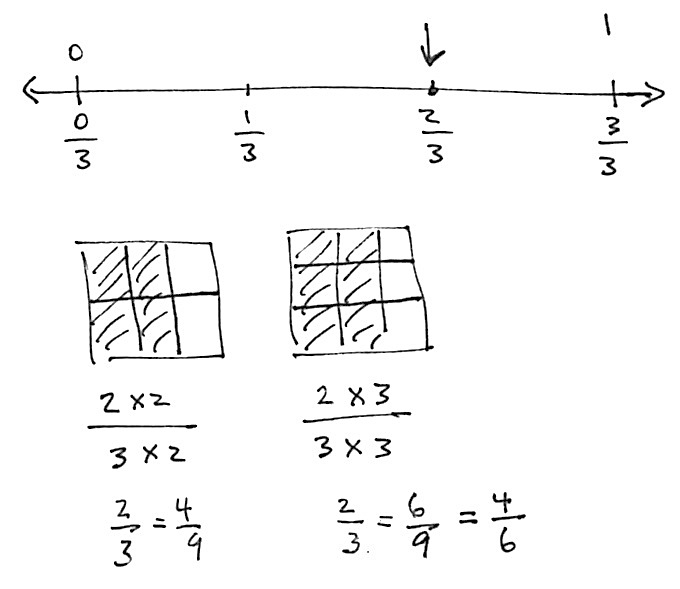 0 1
0/3 1/3 2/3 3/3
2 x 2 / 3 x 2
2 x 3 / 3 x 3
2/3 = 4/9
2/3 = 6/9 = 4/6